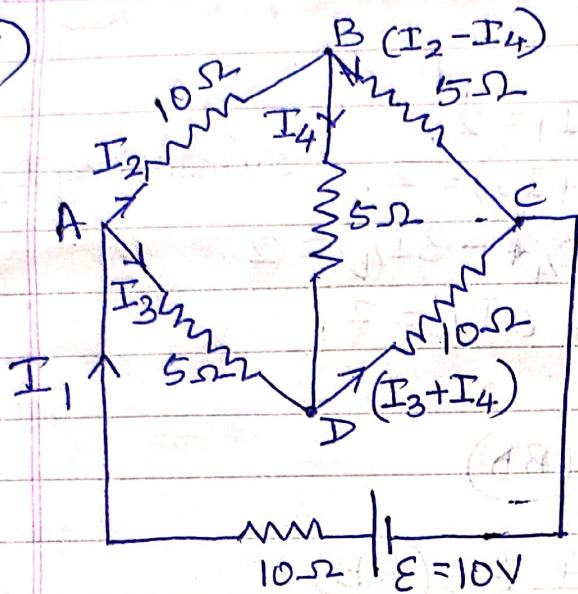 B (I₂-I₄)
10Ω
5Ω
I₄
I₂
A
5Ω
C
I₃
5Ω
10Ω
I₁
(I₃+I₄)
D
10Ω
ε=10V